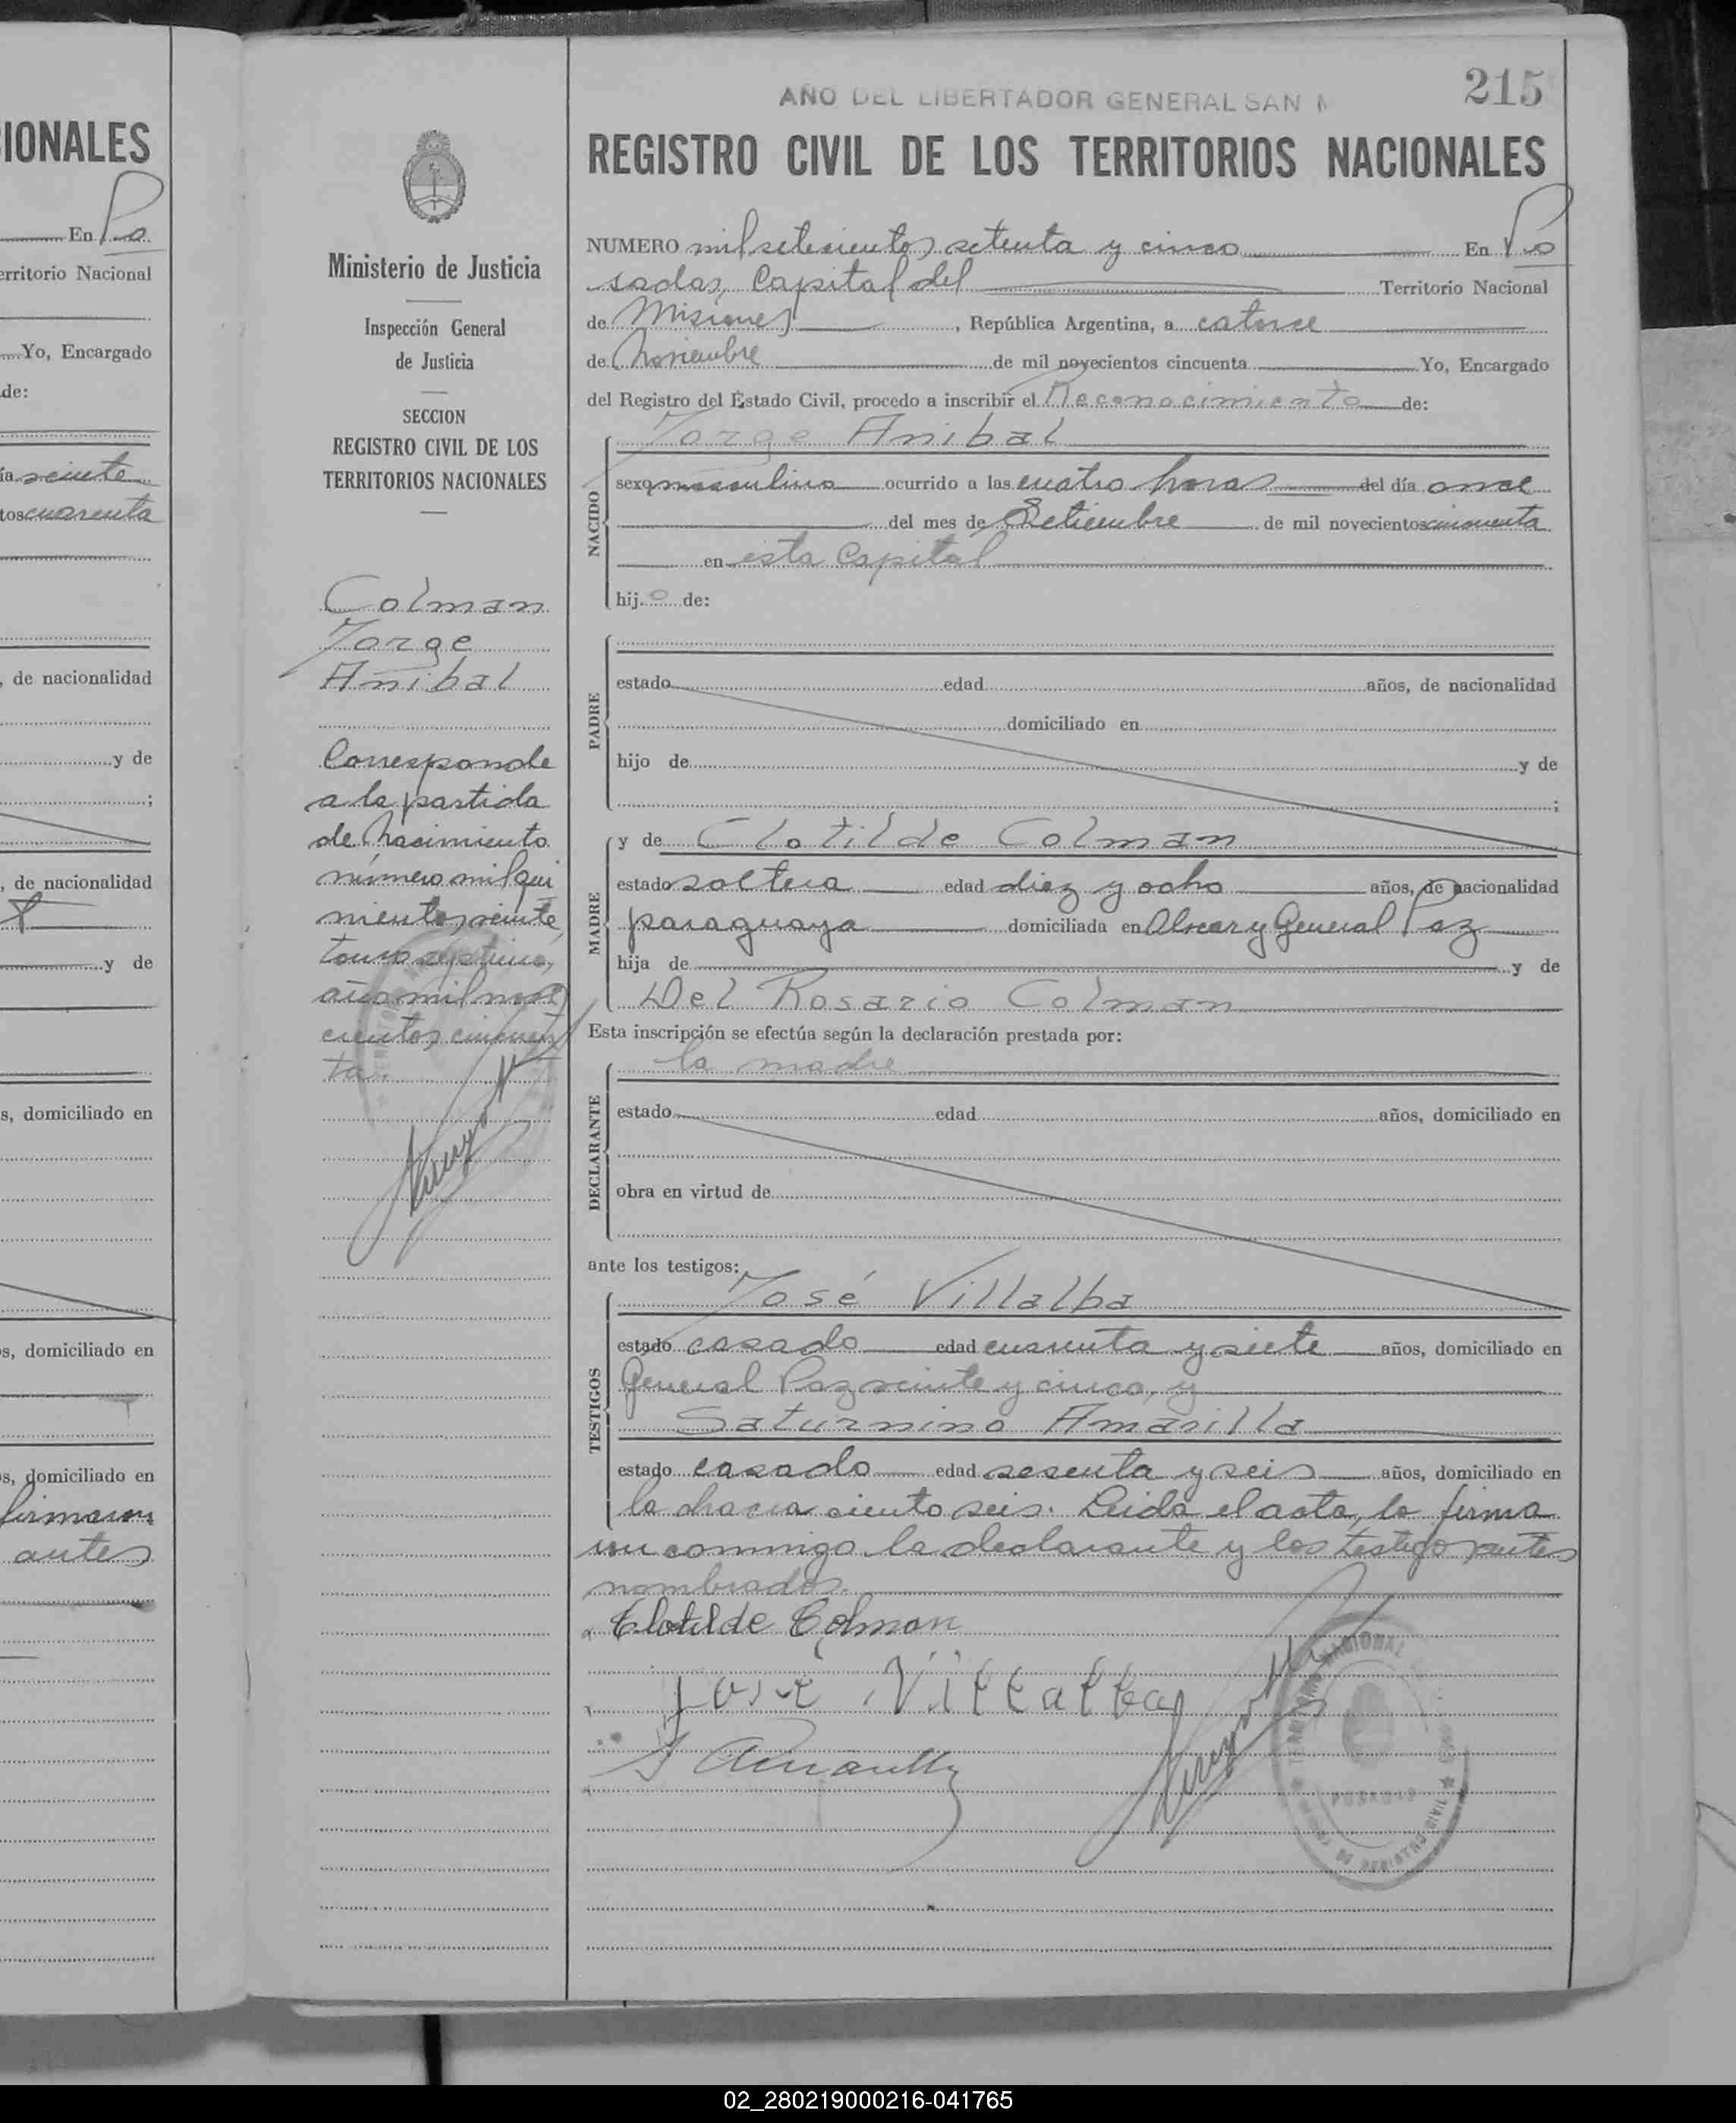 IONALES
En Po
erritorio Nacional
Yo, Encargado
de:
ía veinte
tos cuarenta
, de nacionalidad
y de
;
, de nacionalidad
y de
s, domiciliado en
s, domiciliado en
s, domiciliado en
firmaron
antes
Ministerio de Justicia
Inspección General
de Justicia
SECCION
REGISTRO CIVIL DE LOS
TERRITORIOS NACIONALES
Colman
Jorge
Anibal
Corresponde
a la partida
de Nacimiento
número mil qui
nientos veinte,
tomo septimo,
año mil nove
cientos cincuen
ta.
AÑO DEL LIBERTADOR GENERAL SAN M
215
REGISTRO CIVIL DE LOS TERRITORIOS NACIONALES
NUMERO mil setecientos setenta y cinco En Po
sadas, Capital del Territorio Nacional
de Misiones, República Argentina, a catorce
de Noviembre de mil novecientos cincuenta Yo, Encargado
del Registro del Estado Civil, procedo a inscribir el Reconocimiento de:
Jorge Anibal
NACIDO
sexo masculino ocurrido a las cuatro horas del día once
del mes de Setiembre de mil novecientos cincuenta
en esta Capital
hijo de:
PADRE
estado edad años, de nacionalidad
domiciliado en
hijo de y de
;
MADRE
y de Clotilde Colman
estado soltera edad diez y ocho años, de nacionalidad
paraguaya domiciliada en Alvear y General Paz
hija de y de
Del Rosario Colman
Esta inscripción se efectúa según la declaración prestada por:
la madre
DECLARANTE
estado edad años, domiciliado en
obra en virtud de
ante los testigos:
José Villalba
TESTIGOS
estado casado edad cuarenta y siete años, domiciliado en
General Paz veinte y cinco, y
Saturnino Amarilla
estado casado edad sesenta y seis años, domiciliado en
la chacra ciento seis. Leida el acta, la firma
ron conmigo la declarante y los testigos antes
nombrados.
Clotilde Colman
José Villalba
S Amarilla
TERRITORIO NACIONAL
POSADAS
DE REGISTRO CIVIL
02_280219000216-041765